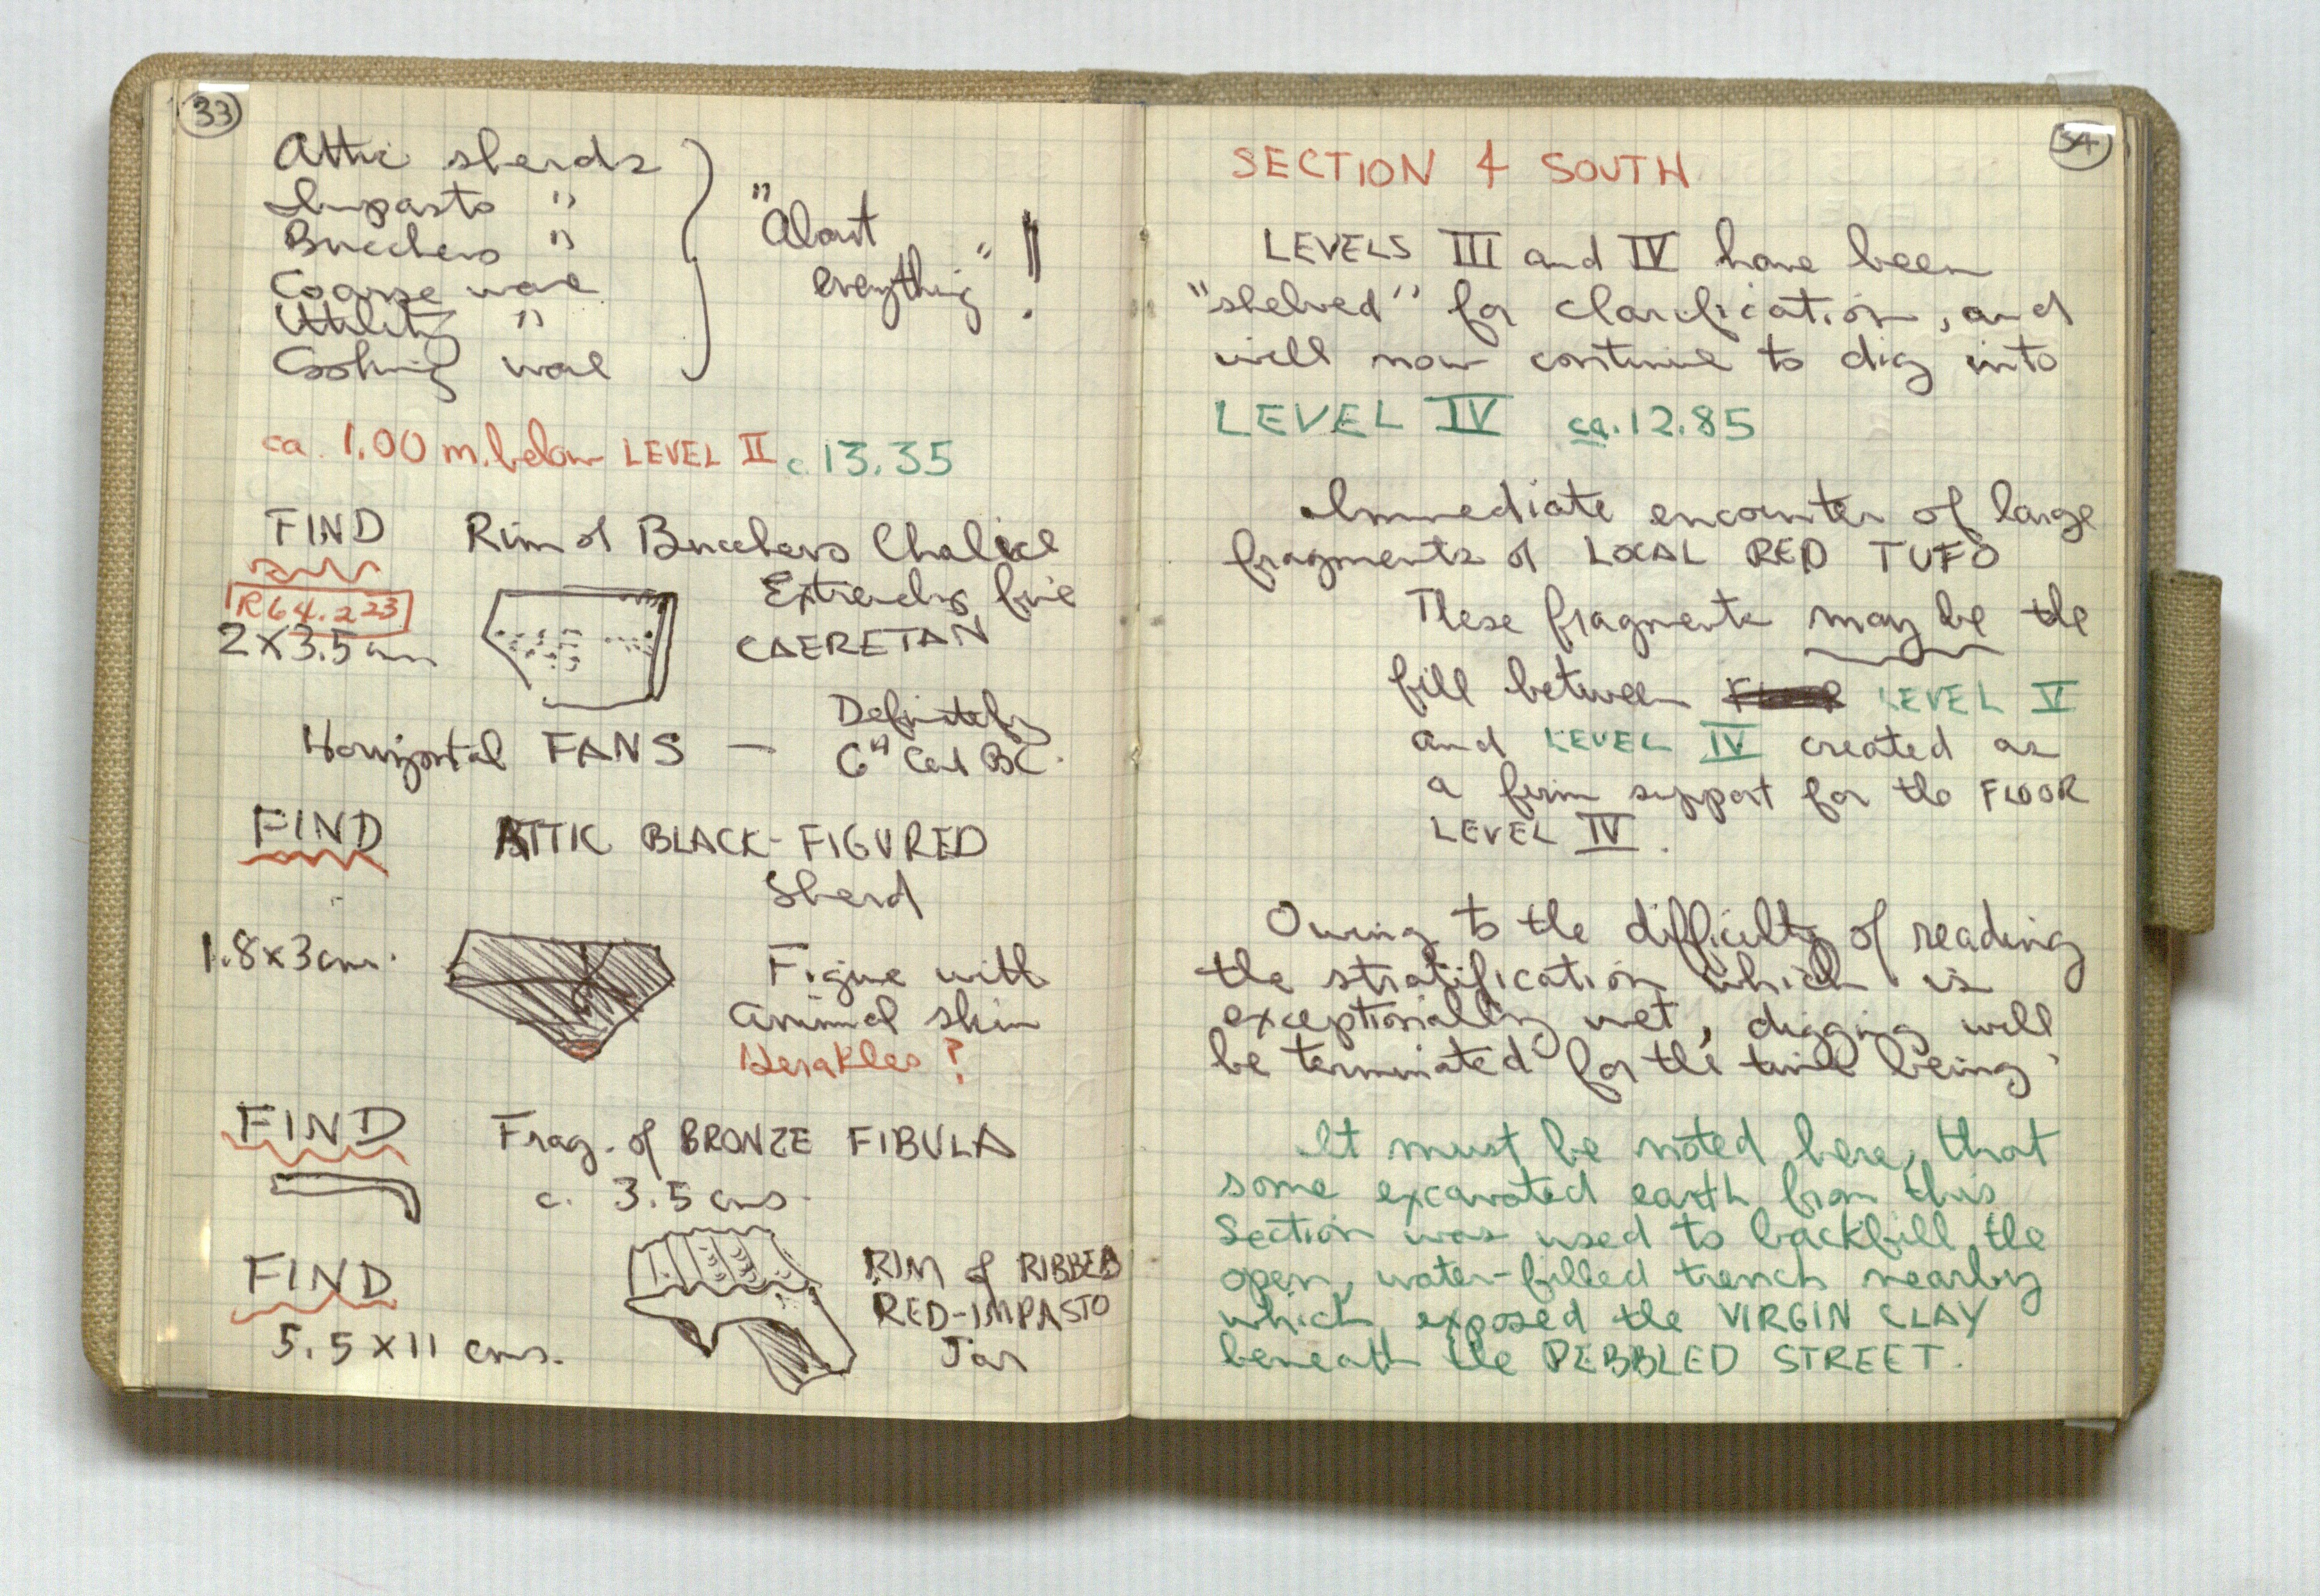 33
Attic sherds
Impasto "
Bucchero "
Coarse ware
Utility "
Cooking ware
"About
everything" !!
ca. 1.00 m. below LEVEL II c. 13.35
FIND Rim of Bucchero Chalice
R64.223
Extremely fine
2 x 3.5 cm
CAERETAN
Horizontal FANS —
Definitely
6th Cent BC.
FIND ATTIC BLACK-FIGURED
Sherd
1.8 x 3 cm.
Figure with
animal skin
Herakles ?
FIND Frag. of BRONZE FIBULA
c. 3.5 cms.
FIND
5.5 x 11 cms.
RIM of RIBBED
RED-IMPASTO
Jar
34
SECTION 4 SOUTH
LEVELS III and IV have been
"shelved" for clarification, and
will now continue to dig into
LEVEL IV ca. 12.85
Immediate encounter of large
fragments of LOCAL RED TUFO
These fragments may be the
fill between LEVEL V
and LEVEL IV created as
a firm support for the FLOOR
LEVEL IV.
Owing to the difficulty of reading
the stratification which is
exceptionally wet, digging will
be terminated for the time being.
It must be noted here, that
some excavated earth from this
Section was used to backfill the
open, water-filled trench nearby
which exposed the VIRGIN CLAY
beneath the PEBBLED STREET.